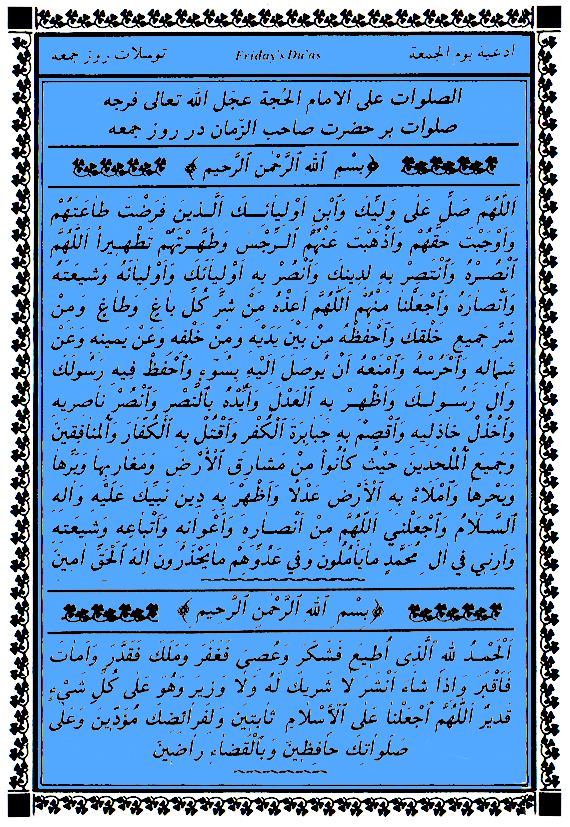 ادعية يوم الجمعة Friday's Du'as توسلات روز جمعه
الصلوات على الامام الحُجة عجّل الله تعالى فرجه
صلوات بر حضرت صاحب الزّمان در روز جمعه
﴿بِسْمِ ٱللهِ ٱلرَّحْمٰنِ ٱلرَّحيمِ﴾
اَللّٰهُمَّ صَلِّ عَلى وَلِيِّكَ وَٱبْنِ اَوْلِيائِـكَ ٱلَّـذينَ فَرَضْتَ طاعَتَهُمْ
وَاَوْجَبْتَ حَقَّهُمْ وَاَذْهَبْتَ عَنْهُمُ ٱلـرِّجْسَ وَطَهَّـرْتَهُمْ تَطْهـيراً اَللّٰهُمَّ
ٱنْصُـرْهُ وَٱنْتَصِرْ بِهِ لِدينِكَ وَٱنْصُرْ بِهِ اَوْلِيائَكَ وَاَوْلِيائَهُ وَشيعَتَهُ
وَاَنْصارَهُ وَٱجْعَلْنا مِنْهُمْ اَللّٰهُمَّ اَعِذْهُ مِنْ شَرِّ كُلِّ باغٍ وَطاغٍ وَمِنْ
شَرِّ جَميعِ خَلْقِكَ وَٱحْفَظْهُ مِنْ بَيْنِ يَدَيْهِ وَمِنْ خَلْفِهِ وَعَنْ يَمينِهِ وَعَنْ
شِمالِهِ وَٱحْرُسْهُ وَٱمْنَعْهُ اَنْ يُوصَلَ اِلَيْهِ بِسُوءٍ وَٱحْفَظْ فيهِ رَسُولَكَ
وَآلَ رَسُـولِـكَ وَاَظْهِـرْ بِهِ ٱلْعَدْلَ وَاَيِّدْهُ بِٱلنَّصْرِ وَٱنْصُرْ ناصِريهِ
وَٱخْذُلْ خاذِليهِ وَٱقْصِمْ بِهِ جَبابِرَةَ ٱلْكُفْرِ وَٱقْتُلْ بِهِ ٱلْكُفّارَ وَٱلْمُنافِقينَ
وَجَميعَ ٱلْمُلْحِدينَ حَيْثُ كانُوا مِنْ مَشارِقِ ٱلْاَرْضِ وَمَغارِبِها وَبَرِّها
وَبَحْرِها وَٱمْلَاءْ بِهِ ٱلْاَرْضَ عَدْلاً وَاَظْهِرْ بِهِ دينَ نَبِيِّكَ عَلَيْهِ وَآلِهِ
ٱلسَّـلامُ وَٱجْعَلْني اَللّٰهُمَّ مِنْ اَنْصـارِهِ وَاَعْوانِهِ وَاَتْباعِهِ وَشيعَتِهِ
وَاَرِني في آلِ مُحَمَّدٍ ما يَأْمُلُونَ وَفي عَدُوِّهِمْ ما يَحْذَرُونَ اِلٰهَ ٱلْحَقِّ آمينَ
﴿بِسْمِ ٱللهِ ٱلرَّحْمٰنِ ٱلرَّحيمِ﴾
اَلْحَمْـدُ لِلّٰهِ ٱلَّذى اُطيعَ فَشَكَرَ وَعُصِيَ فَغَفَرَ وَمَلَكَ فَقَدَّرَ وَاَماتَ
فَاَقْبَرَ وَاِذا شاءَ اَنْشَرَ لا شَريكَ لَهُ وَلا وَزيرَ وَهُوَ عَلى كُلِّ شَيْءٍ
قَديرٌ اَللّٰهُمَّ ٱجْعَلْنا عَلَى ٱلْاِسْلامِ ثابِتينَ وَلِفَرائِضِكَ مُؤَدّينَ وَعَلى
صَلَواتِكَ حافِظينَ وَبِٱلْقَضاءِ راضينَ